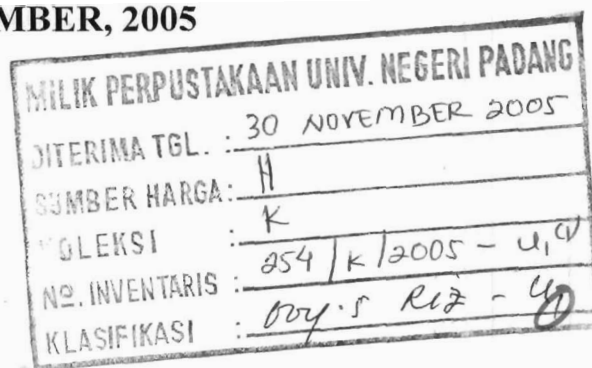 MBER, 2005
MILIK PERPUSTAKAAN UNIV. NEGERI PADANG
DITERIMA TGL. : 30 NOVEMBER 2005
SUMBER HARGA: H
KOLEKSI : K
Nº. INVENTARIS : 254 / K / 2005 - U, (1)
KLASIFIKASI : RIZ - U (1)